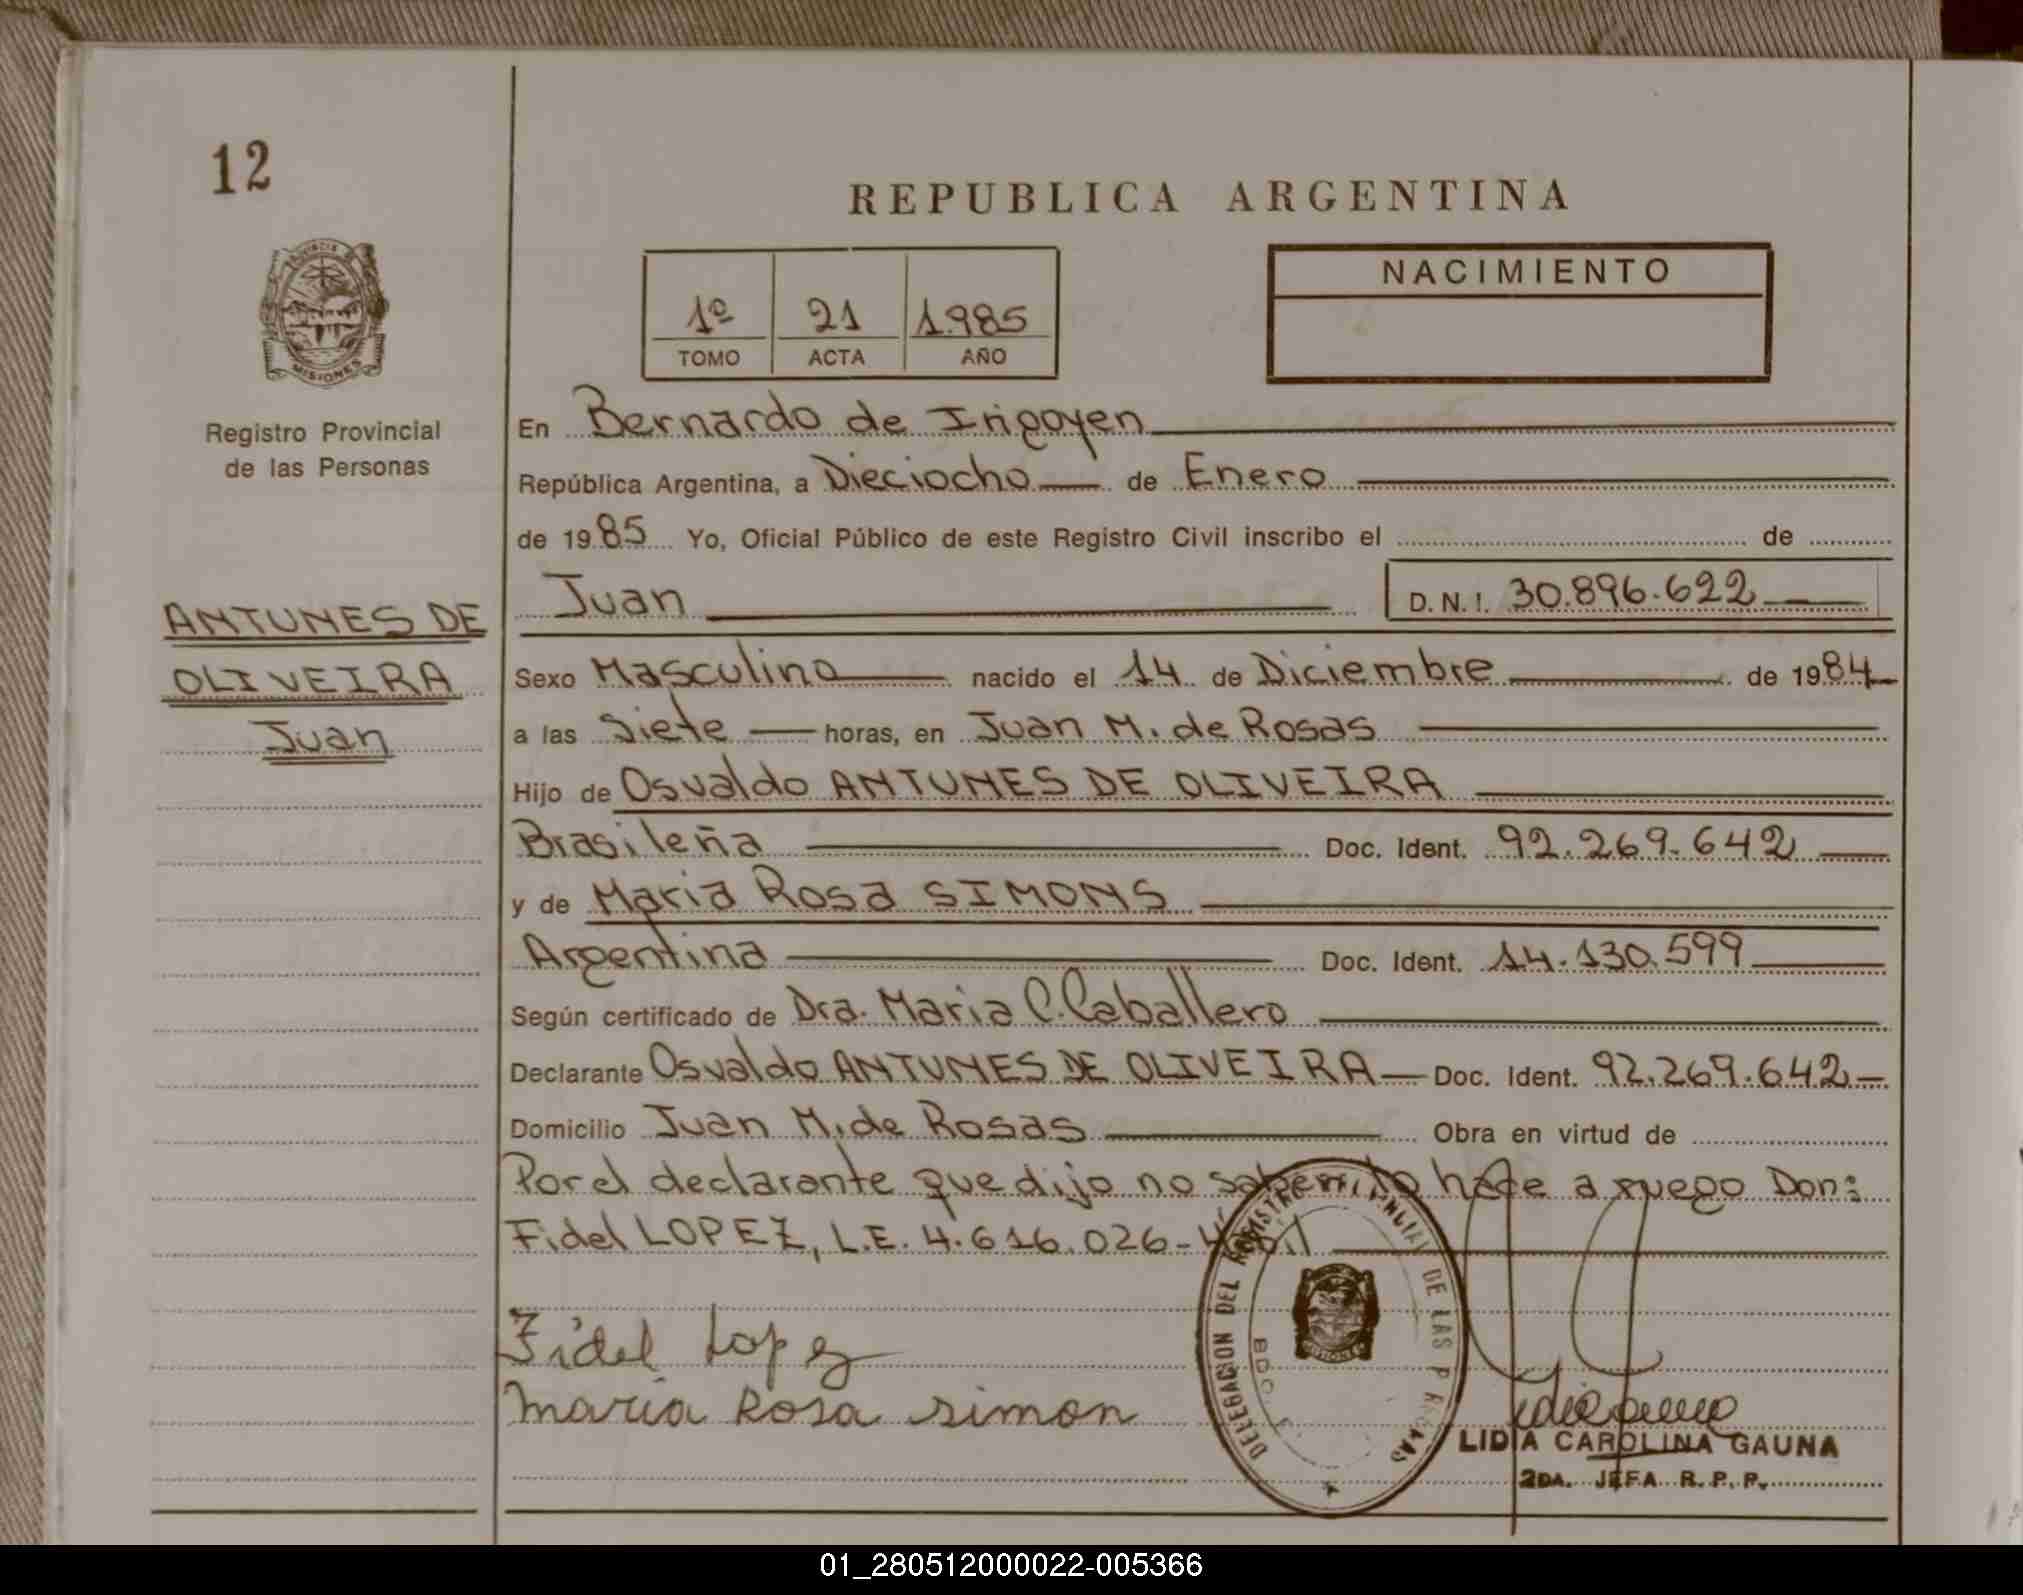 12
REPUBLICA ARGENTINA
NACIMIENTO
1º 21 1985
TOMO ACTA AÑO
MISIONES
Registro Provincial
de las Personas
ANTUNES DE
OLIVEIRA
Juan
En Bernardo de Irigoyen
República Argentina, a Dieciocho de Enero
de 1985 Yo, Oficial Público de este Registro Civil inscribo el de
Juan D.N.I. 30.896.622
Sexo Masculino nacido el 14 de Diciembre de 1984
a las Siete horas, en Juan M. de Rosas
Hijo de Osvaldo ANTUNES DE OLIVEIRA
Brasileña Doc. Ident. 92.269.642
y de Maria Rosa SIMONS
Argentina Doc. Ident. 14.130.599
Según certificado de Dra. Maria C. Caballero
Declarante Osvaldo ANTUNES DE OLIVEIRA Doc. Ident. 92.269.642
Domicilio Juan M. de Rosas Obra en virtud de
Por el declarante que dijo no saber hace a ruego Don:
Fidel LOPEZ, L.E. 4.616.026-
Fidel Lopez
maria Rosa simon
DELEGACION DEL REGISTRO PROVINCIAL DE LAS PERSONAS
LIDIA CAROLINA GAUNA
2DA. JEFA R. P. P.
01_280512000022-005366